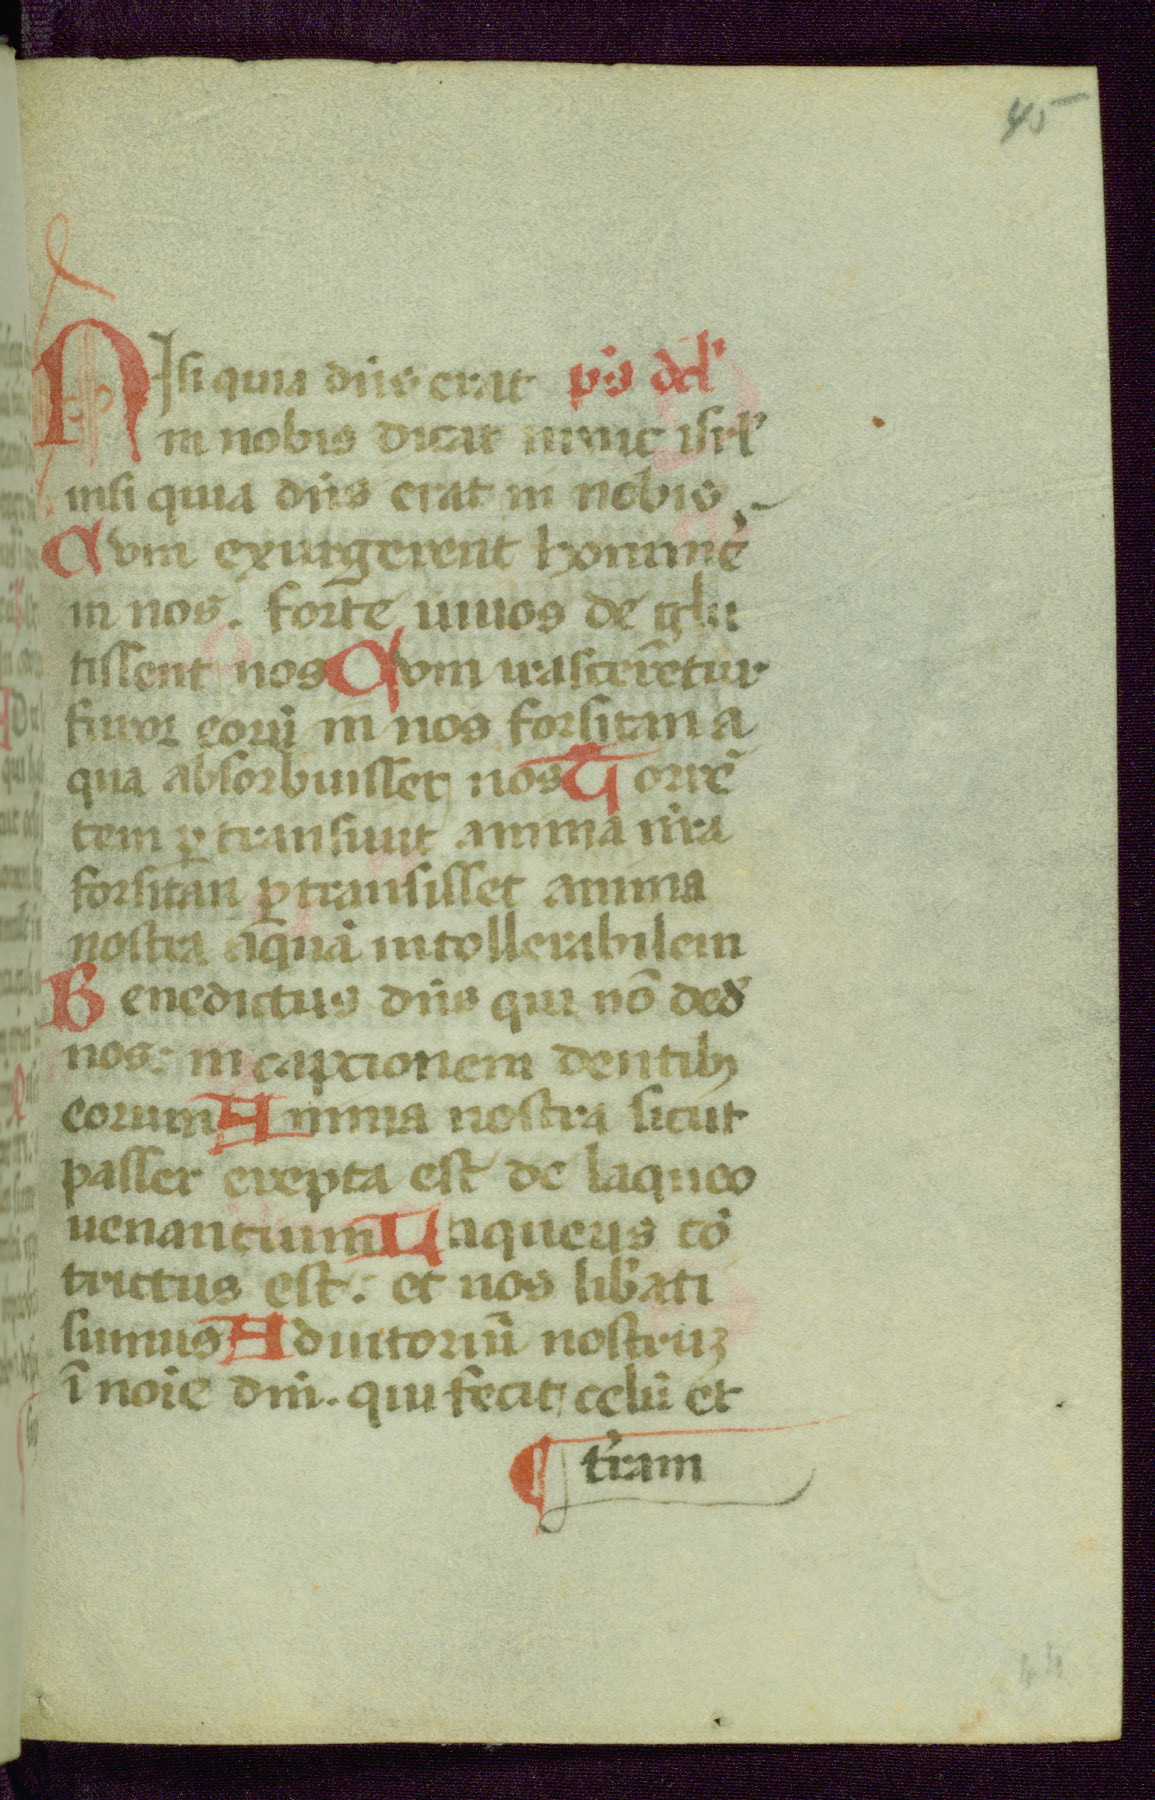 45
Nisi quia dn̄s erat ps̄ dd'
in nobis dicat nunc isrl'
nisi quia dn̄s erat in nobis
Cvm exurgerent homine᷒
in nos. forte uiuos de glu
tissent nos Cvm irascerētur
furor eorū in nos forsitan a
qua absorbuisset nos Torrē
tem ꝑtransiuit anima nr̄a
forsitan ꝑtransisset anima
nostra aquā intollerabilem
Benedictus dn̄s qui nō ded᷒
nos: in capcionem dentibꝫ
eorum Anima nostra sicut
passer erepta est de laqueo
uenantium Laqueus cō
trictus est: et nos lib̄ati
sumus Adiutoriū nostruꝫ
ī noīe dn̄i. qui fecit celū et
t̄ram
44